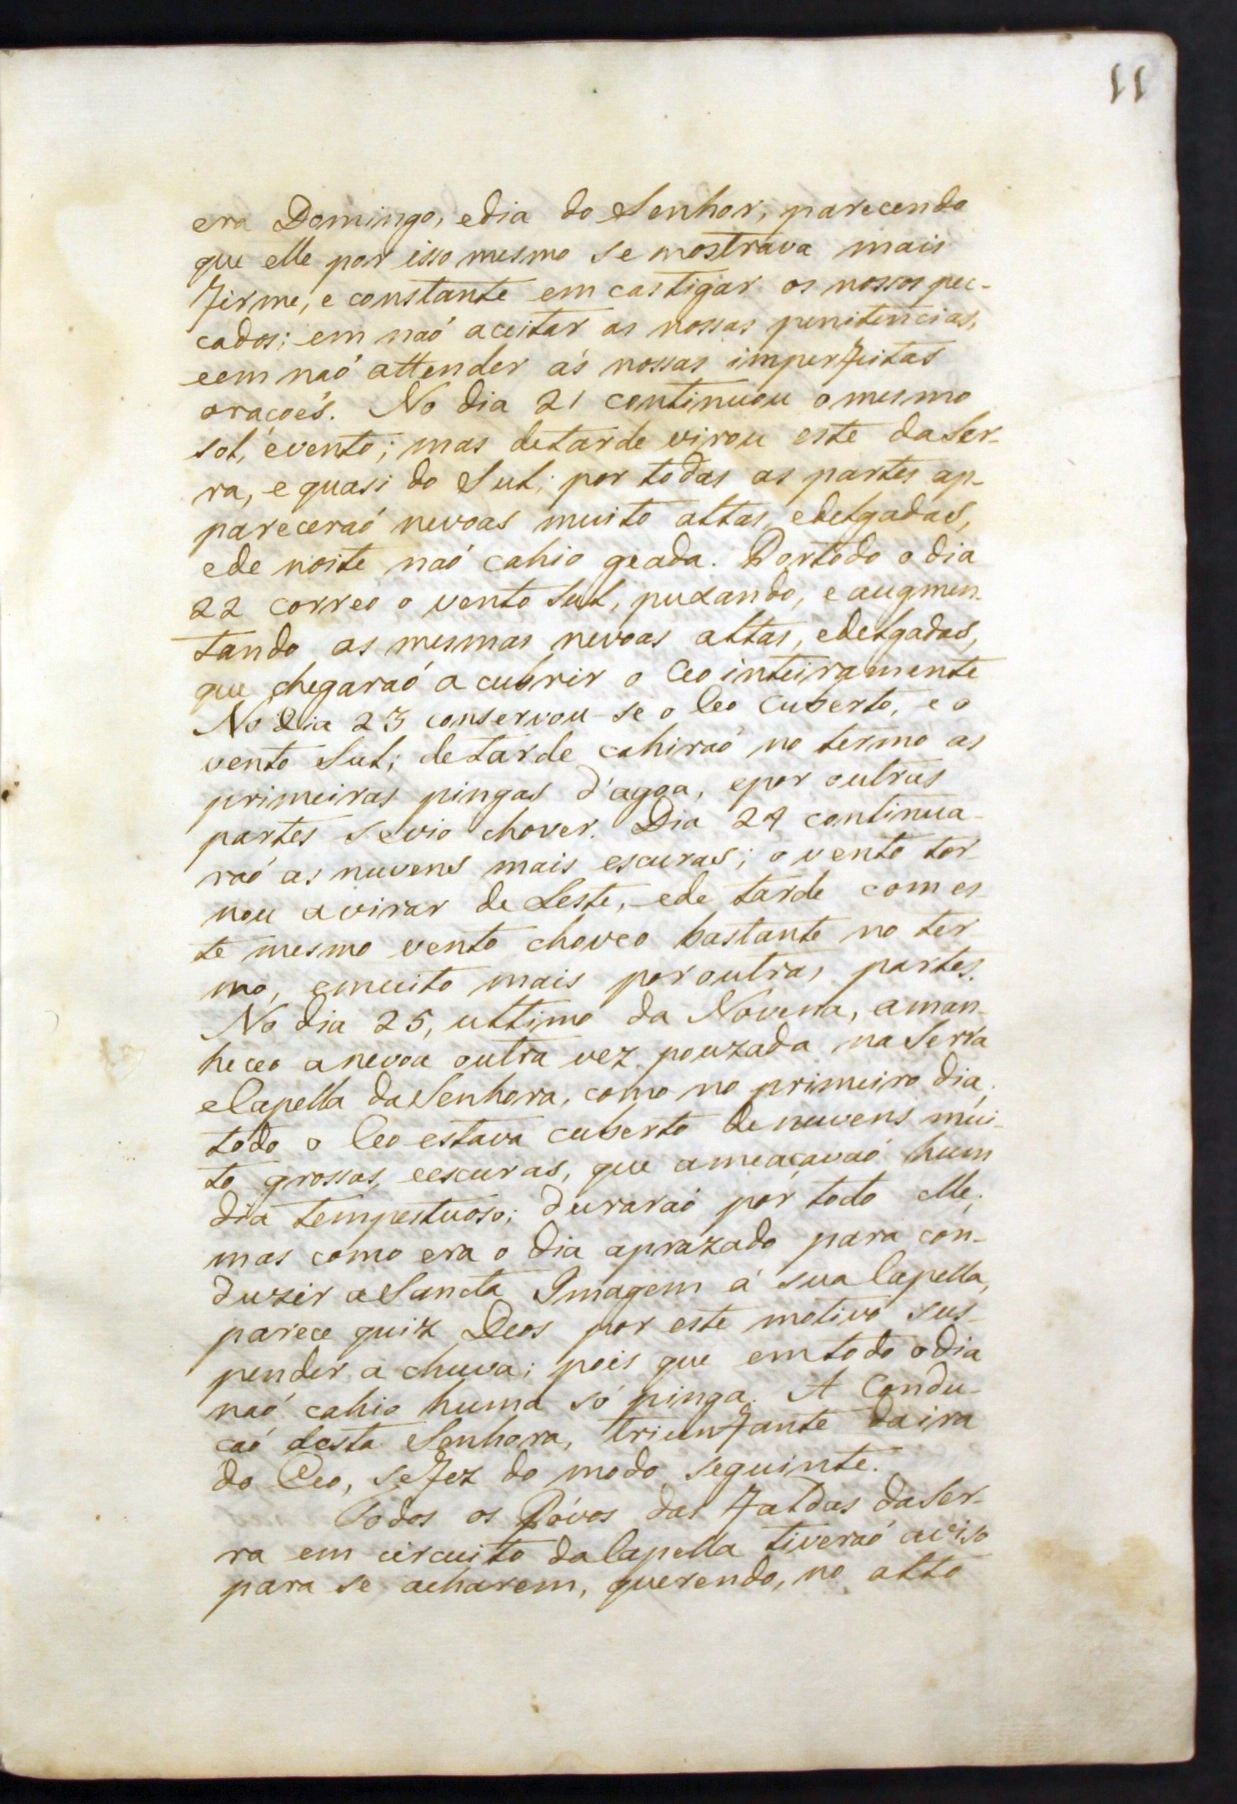 11
era Domingo, e dia do Senhor, parecendo
que elle por isso mesmo se mostrava mais
firme, e constante em castigar os nossos pec-
cados; em naó aceitar as nossas penitencias,
e em naó attender ás nossas imperfeitas
oraçoẽs. No dia 21 continuou o mesmo
sol, e vento; mas de tarde virou este da Ser-
ra, e quasi do Sul; por todas as partes ap-
pareceraó nevoas muito altas, e delgadas,
e de noite naó cahio geada. Por todo o dia
22 correo o vento Sul, puxando, e augmen-
tando as mesmas nevoas altas, e delgadas,
que chegaraó a cubrir o Ceo inteiramente
No dia 23 conservou-se o Ceo cuberto, e o
vento Sul; de tarde cahiraó no termo as
primeiras pingas d'agoa, e por outras
partes se vio chover. Dia 24 continua-
raó as nuvens mais escuras; o vento tor-
nou a virar de Leste, e de tarde com es-
te mesmo vento choveo bastante no ter
mo, e muito mais por outras partes.
No dia 25, ultimo da Novena, aman-
heceo a nevoa outra vez pouzada na Serra
e Capella da Senhora, como no primeiro dia;
todo o Ceo estava cuberto de nuvens mui-
to grossas, e escuras, que ameaçavaó hum
dia tempestuoso; duraraó por todo elle;
mas como era o dia aprazado para con-
duzir a Sancta Imagem á sua Capella,
parece quiz Deos por este motivo sus-
pender a chuva; pois que em todo o dia
naó cahio huma só pinga. A Condu-
caó desta Senhora, triunfante da ira
do Ceo, se fez do modo seguinte.
Todos os Póvos das faldas da Ser-
ra em circuito da Capella tiveraó aviso
para se acharem, querendo, no alto